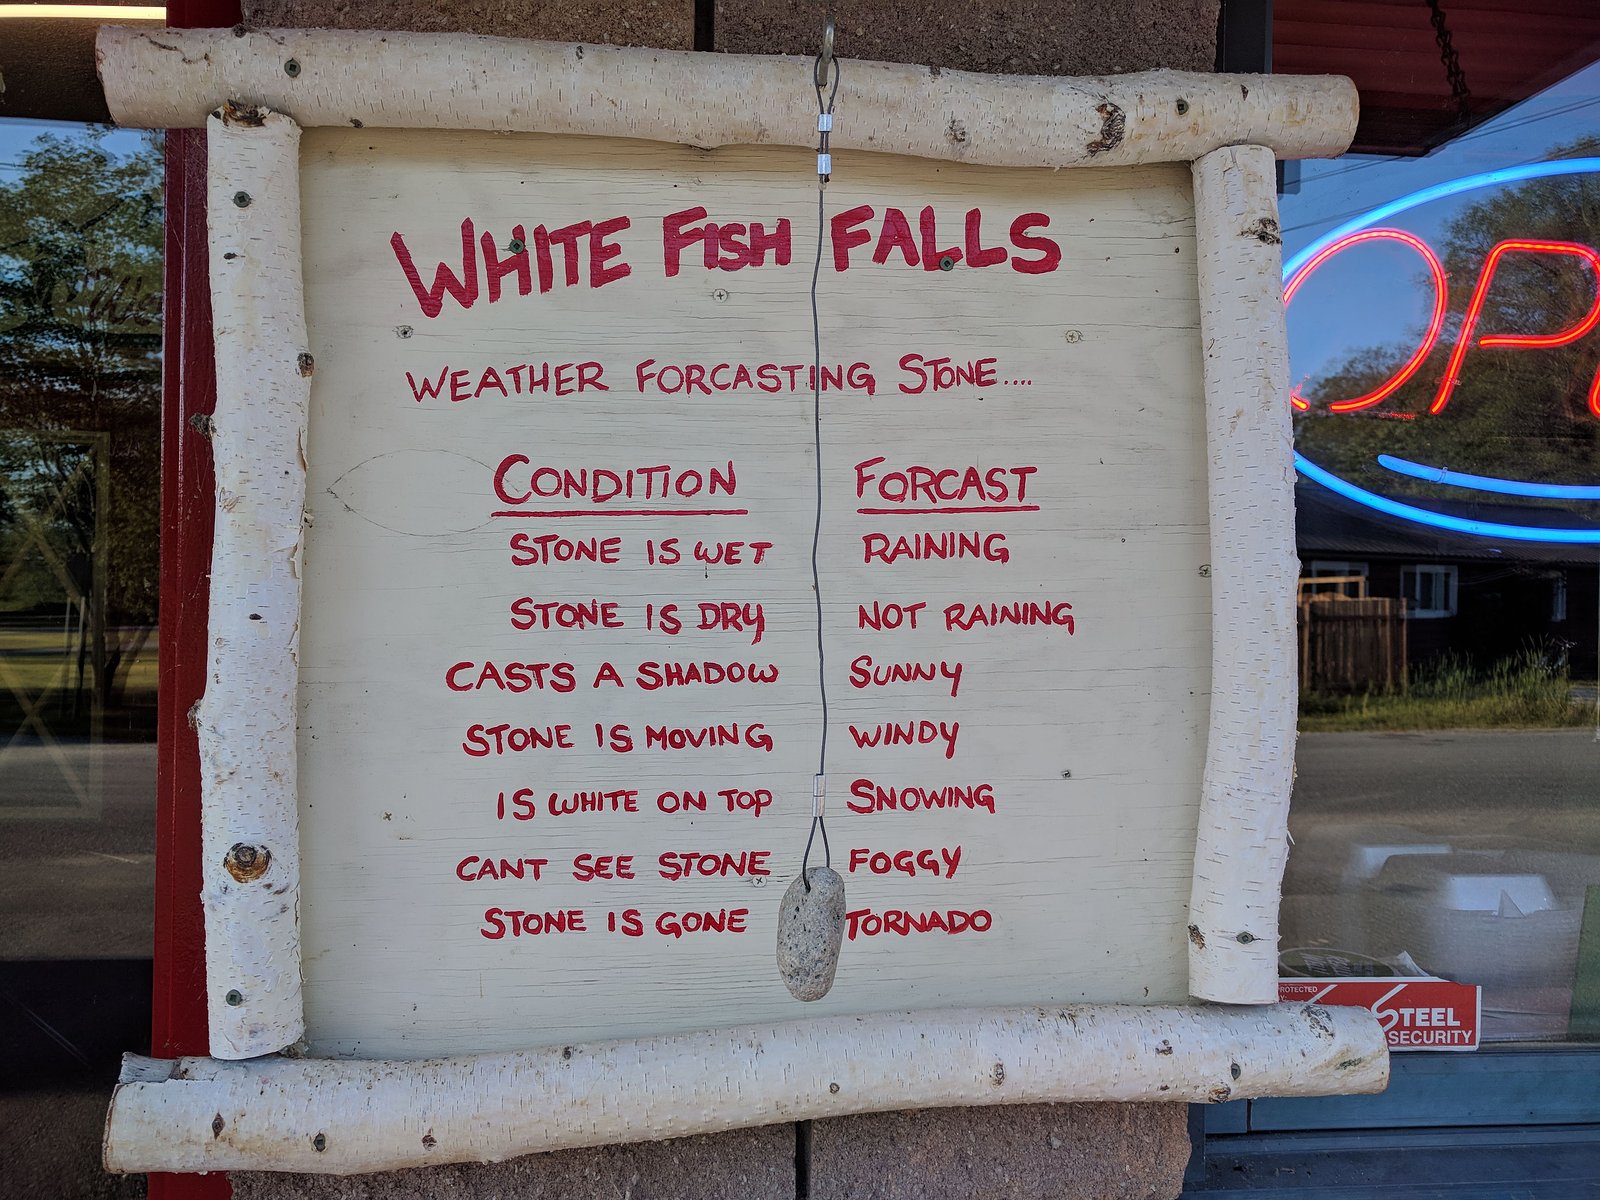 WHITE FISH FALLS
WEATHER FORCASTING STONE....
CONDITION FORCAST
STONE IS WET RAINING
STONE IS DRY NOT RAINING
CASTS A SHADOW SUNNY
STONE IS MOVING WINDY
IS WHITE ON TOP SNOWING
CANT SEE STONE FOGGY
STONE IS GONE TORNADO
OP
PROTECTED
STEEL
SECURITY